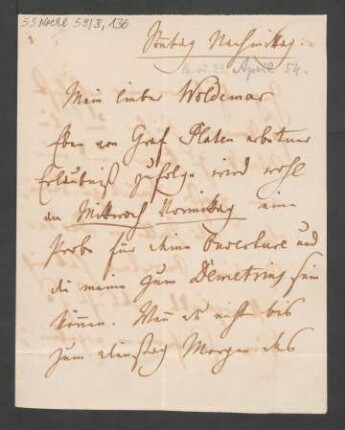 55 Nachl 59/B,136
Sonntag Nachmittag.
April 54.
Mein lieber Woldemar
Eben von Graf Platen erbetener
Erlaubniß zufolge wird wohl
am Mittwoch Vormittag eine
Probe für deine Ouverture und
die meine zum Demetrius sein
können. Wenn du nicht bis
zum Dienstag Morgen des